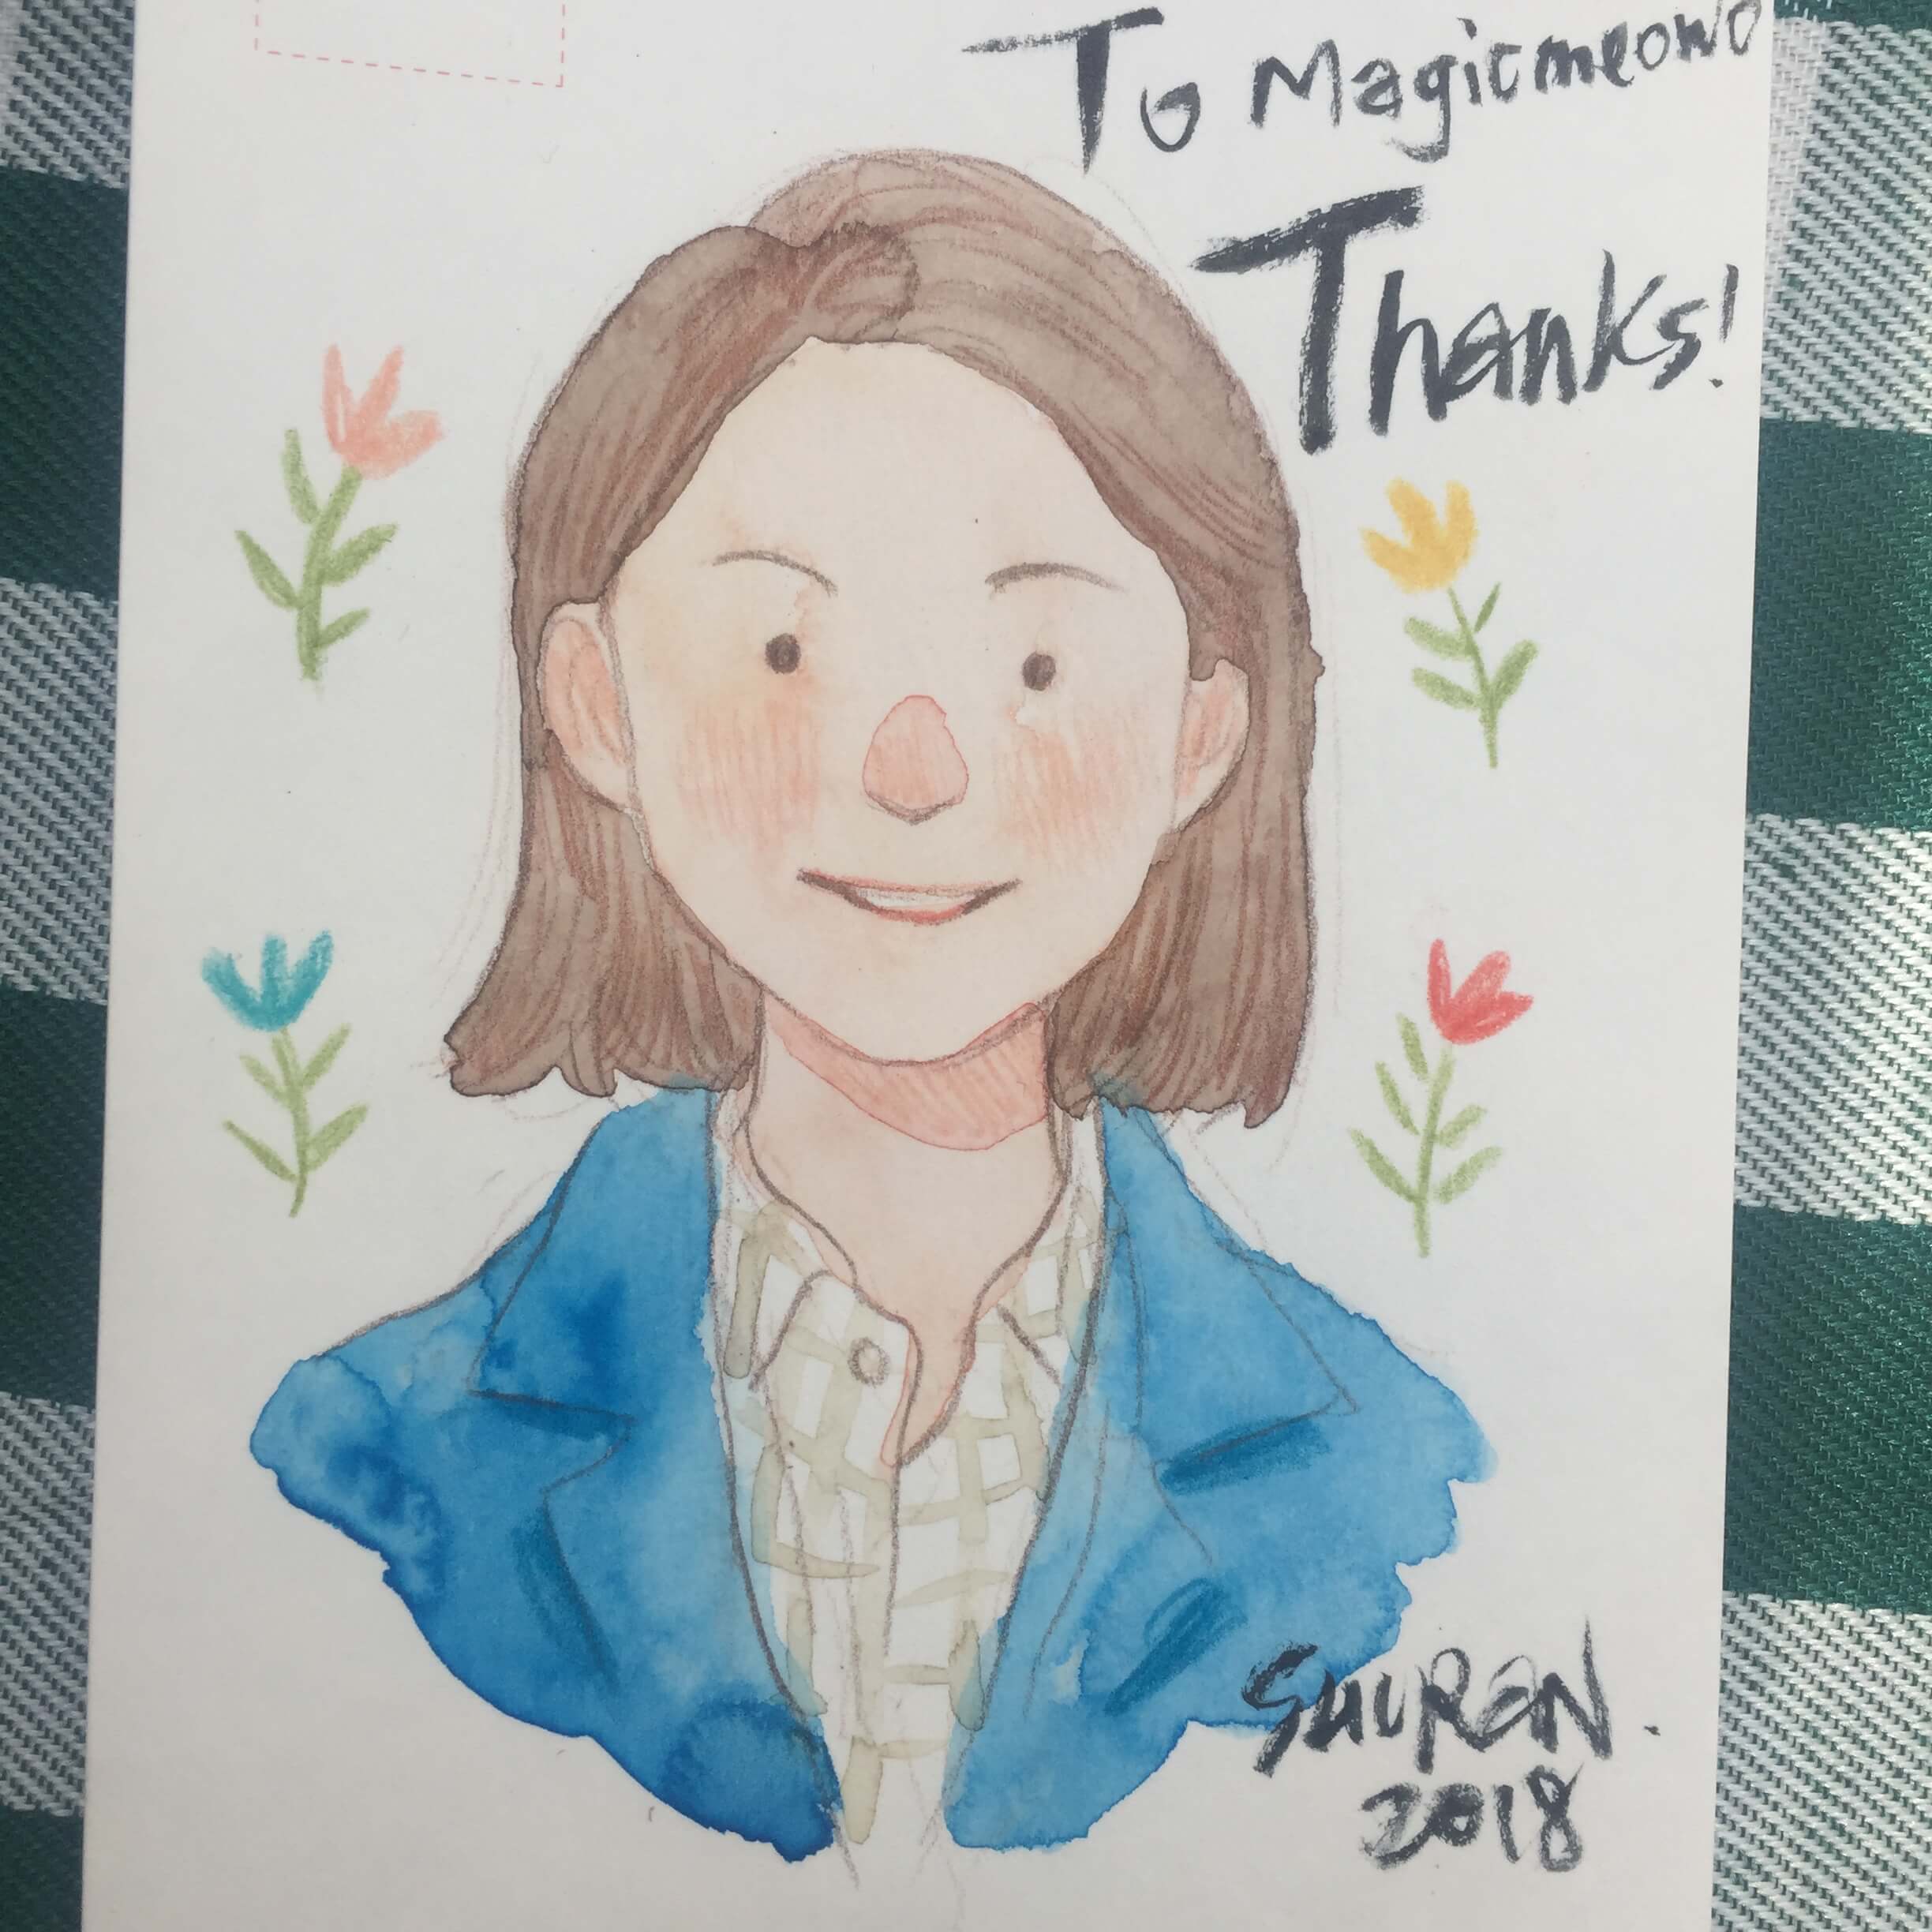 To Magicmeowo
Thanks!
SUUREN.
2018